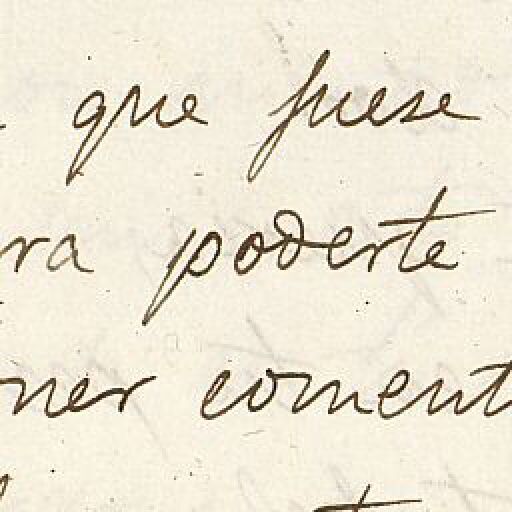 que fuese
ra poderte
ner coment